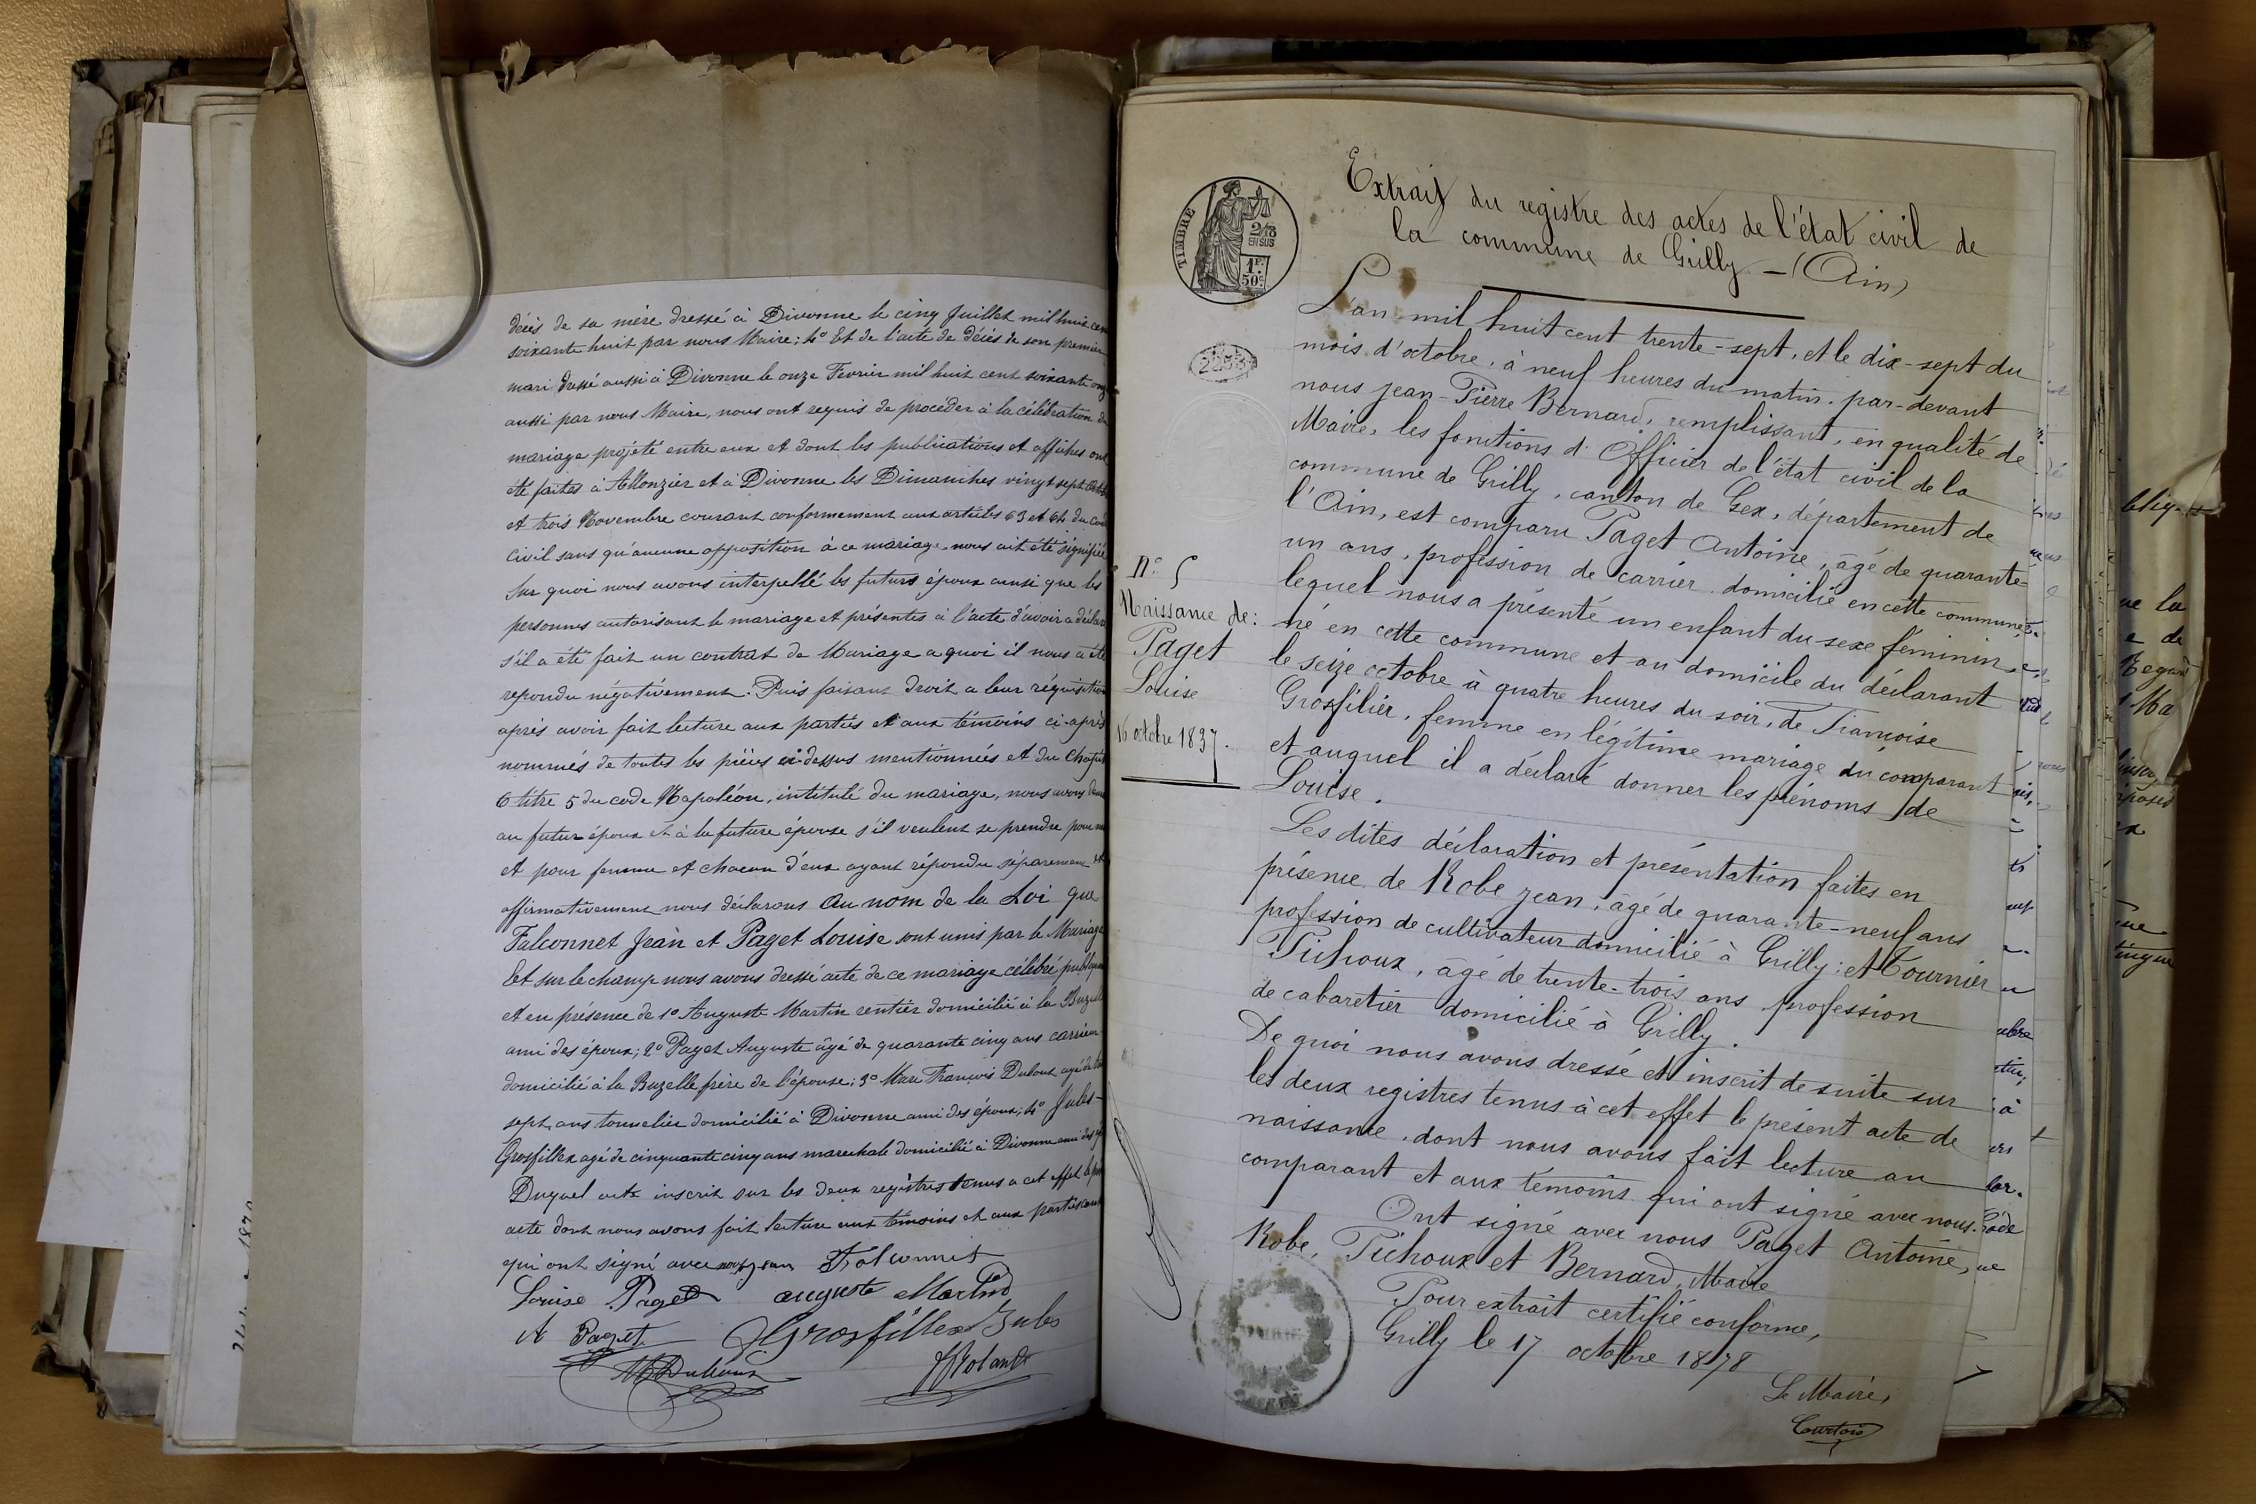 décès de sa mère dressé à Divonne le cinq Juillet mil huit cen
soixante huit par nous Maire; 4° Et de l'acte de décès de son premier
mari dressé aussi à Divonne le onze Fevrier mil huit cent soixante onz
aussi par nous Maire, nous ont requis de procéder à la célébration du
mariage projété entre eux et dont les publications et affiches ont
été faites à Allonzier et à Divonne les Dimanches vingt sept
et trois Novembre courant conformement aux articles 63 et 64 du Code
civil sans qu'aucune opposition à ce mariage nous ait été signifié
Sur quoi nous avons interpellé les futurs époux ainsi que les
personnes autorisant le mariage et présentes à l'acte d'avoir a déclar
s'il a été fait un contrat de Mariage a quoi il nous a été
repondu négativement. Puis faisant droit a leur réquisition
après avoir fait lecture aux parties et aux témoins ci-après
nommés de toutes les pièces ci-dessus mentionnées et du Chapit
6 titre 5 du code Napoléon, intitulé du mariage, nous avons dem
au futur époux et à la future épouse s'il veulent se prendre pour m
et pour femme et chacun d'eux ayant répondu séparement et
affirmativement nous déclarons Au nom de la Loi que
Falconnet Jean et Paget Louise sont unis par le Mariage
Et sur le champ nous avons dressé acte de ce mariage célébré publiq
et en présence de 1° Auguste Martin rentier domicilié à la Buzelle
ami des époux; 2° Paget Auguste âgé de quarante cinq ans carrier
domicilié à la Buzelle frère de l'épouse; 3° Marc François Duboux agé de
sept ans tonnelier domicilié à Divonne ami des époux; 4° Jules-
Grosfillex agé de cinquante cinq ans marechale domicilié à Divonne ami des ép
Duquel acte inscrit sur les deux registres tenus a cet effet le pré
acte dont nous avons fait lecture aux témoins et aux parties
qui ont signé avec nous Jean Falconnet
Louise Paget auguste Martin
A Paget Grosfillex Jules
Extrait du registre des actes de l'état civil de
la commune de Grilly - (Ain)
TIMBRE
2/10
EN SUS
1F.
50c
L'an mil huit cent trente-sept, et le dix-sept du
mois d'octobre, à neuf heures du matin, par-devant
nous Jean-Pierre Bernard, remplissant, en qualité de
Maire, les fonctions d'Officier de l'état civil de la
commune de Grilly, canton de Gex, département de
l'Ain, est comparu Paget Antoine, âgé de quarante-
un ans, profession de carrier, domicilié en cette commune,
lequel nous a présenté un enfant du sexe féminin,
né en cette commune et au domicile du déclarant
le seize octobre à quatre heures du soir, de Françoise
Grosfilier, femme en légitime mariage du comparant
et auquel il a déclaré donner les prénoms de
Louise.
N° 5
Naissance de:
Paget
Louise
16 octobre 1837.
Les dites déclaration et présentation faites en
présence de Robe Jean, âgé de quarante-neuf ans
profession de cultivateur domicilié à Grilly; et Tournier
Pichoux, âgé de trente-trois ans profession
de cabaretier domicilié à Grilly.
De quoi nous avons dressé et inscrit de suite sur
les deux registres tenus à cet effet le présent acte de
naissance, dont nous avons fait lecture au
comparant et aux témoins qui ont signé avec nous.
Ont signé avec nous Paget Antoine,
Robe, Pichoux et Bernard, Maire
Pour extrait certifié conforme,
Grilly le 17 octobre 1878
Le Maire,
Courtois